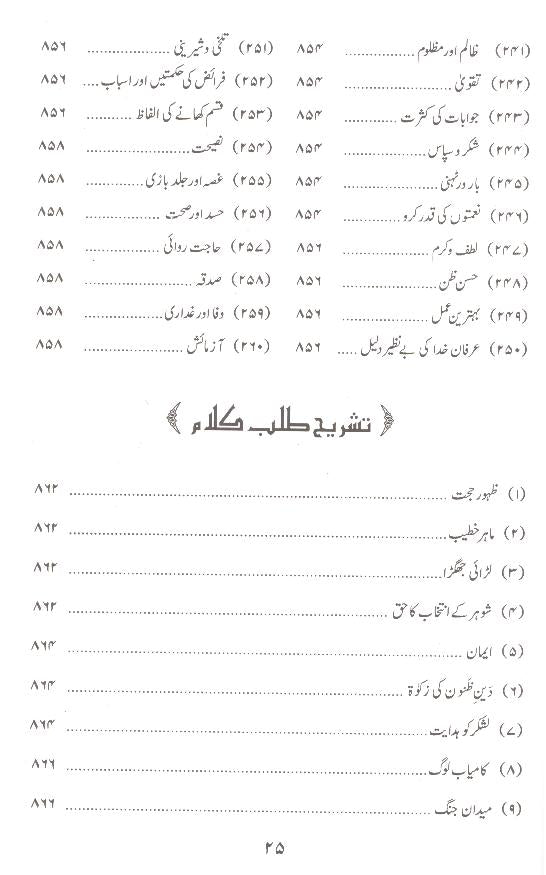 (۲۴۱) ظالم اور مظلوم ................ ۸۵۴
(۲۴۲) تقویٰ ................ ۸۵۴
(۲۴۳) جوابات کی کثرت ................ ۸۵۴
(۲۴۴) شکر و سپاس ................ ۸۵۴
(۲۴۵) بار ور ٹہنی ................ ۸۵۴
(۲۴۶) نعمتوں کی قدر کرو ................ ۸۵۴
(۲۴۷) لطف و کرم ................ ۸۵۶
(۲۴۸) حسن ظن ................ ۸۵۶
(۲۴۹) بہترین عمل ................ ۸۵۶
(۲۵۰) عرفان خدا کی بے نظیر دلیل ..... ۸۵۶
(۲۵۱) تلخی و شیرینی ................ ۸۵۶
(۲۵۲) فرائض کی حکمتیں اور اسباب .... ۸۵۶
(۲۵۳) قسم کھانے کی الفاظ ........... ۸۵۶
(۲۵۴) نصیحت ................ ۸۵۸
(۲۵۵) غصہ اور جلد بازی ................ ۸۵۸
(۲۵۶) حسد اور صحت ................ ۸۵۸
(۲۵۷) حاجت روائی ................ ۸۵۸
(۲۵۸) صدقہ ................ ۸۵۸
(۲۵۹) وفا اور غداری ................ ۸۵۸
(۲۶۰) آزمائش ................ ۸۵۸
﴿ تشریح طلب کلام ﴾
(۱) ظہور حجت ................ ۸۶۲
(۲) ماہر خطیب ................ ۸۶۲
(۳) لڑائی جھگڑا ................ ۸۶۲
(۴) شوہر کے انتخاب کا حق ................ ۸۶۲
(۵) ایمان ................ ۸۶۴
(۶) دَینِ ظَنون کی زکوٰۃ ................ ۸۶۴
(۷) لشکر کو ہدایت ................ ۸۶۴
(۸) کامیاب لوگ ................ ۸۶۶
(۹) میدان جنگ ................ ۸۶۶
۲۵